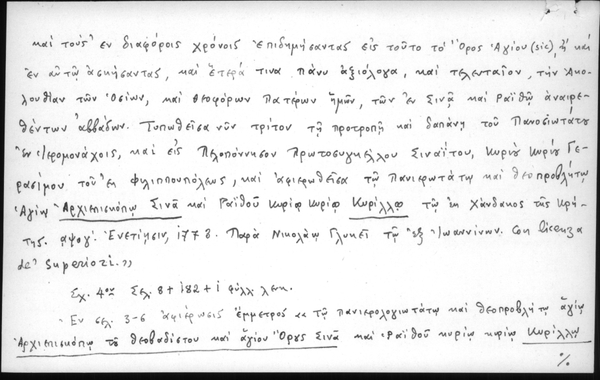 καὶ τοὺς ἐν διαφόροις χρόνοις ἐπιδημήσαντας εἰς τοῦτο τὸ Ὄρος Ἁγίου (sic), ἢ καὶ
ἐν αὐτῷ ἀσκήσαντας, καὶ ἕτερά τινα πάνυ ἀξιόλογα, καὶ τελευταῖον, τὴν Ἀκο-
λουθίαν τῶν Ὁσίων, καὶ θεοφόρων Πατέρων ἡμῶν, τῶν ἐν Σινᾷ καὶ Ραϊθῷ ἀναιρε-
θέντων Ἀββάδων. Τυπωθεῖσα νῦν τρίτον τῇ προτροπῇ καὶ δαπάνῃ τοῦ Πανοσιωτάτου
ἐν Ἱερομονάχοις, καὶ εἰς Πελοπόννησον Πρωτοσυγκέλλου Σιναΐτου, Κυρίου Κυρίου Γε-
ρασίμου τοῦ ἐκ Φιλιππουπόλεως, καὶ ἀφιερωθεῖσα τῷ Πανιερωτάτῳ καὶ θεοπροβλήτῳ
Ἁγίῳ Ἀρχιεπισκόπῳ Σινᾶ καὶ Ραϊθοῦ Κυρίῳ Κυρίῳ Κυρίλλῳ τῷ ἐκ Χάνδακος τῆς Κρή-
της. αψογ'. Ἐνετίησιν, 1773. Παρὰ Νικολάῳ Γλυκεῖ τῷ ἐξ Ἰωαννίνων. Con licenza
de' Superiori.»
Σχ. 4ον Σελ. 8 + 182 + 1 φύλλ. λευκ.
Ἐν σελ. 3-6 ἀφιέρωσις ἔμμετρος «τῷ πανιερολογιωτάτῳ καὶ θεοπροβλήτῳ ἁγίῳ
Ἀρχιεπισκόπῳ τοῦ θεοβαδίστου καὶ ἁγίου Ὄρους Σινᾶ καὶ Ραϊθοῦ κυρίῳ κυρίῳ Κυρίλλῳ
%